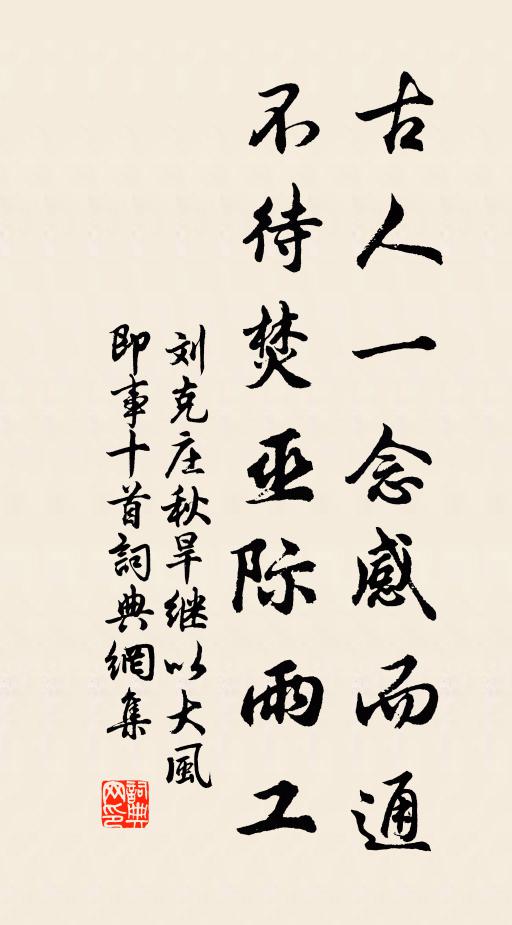 古人一念感而通
不待焚巫际雨工
刘克庄秋旱继以大風
即事十首詞典網集
詞典网印